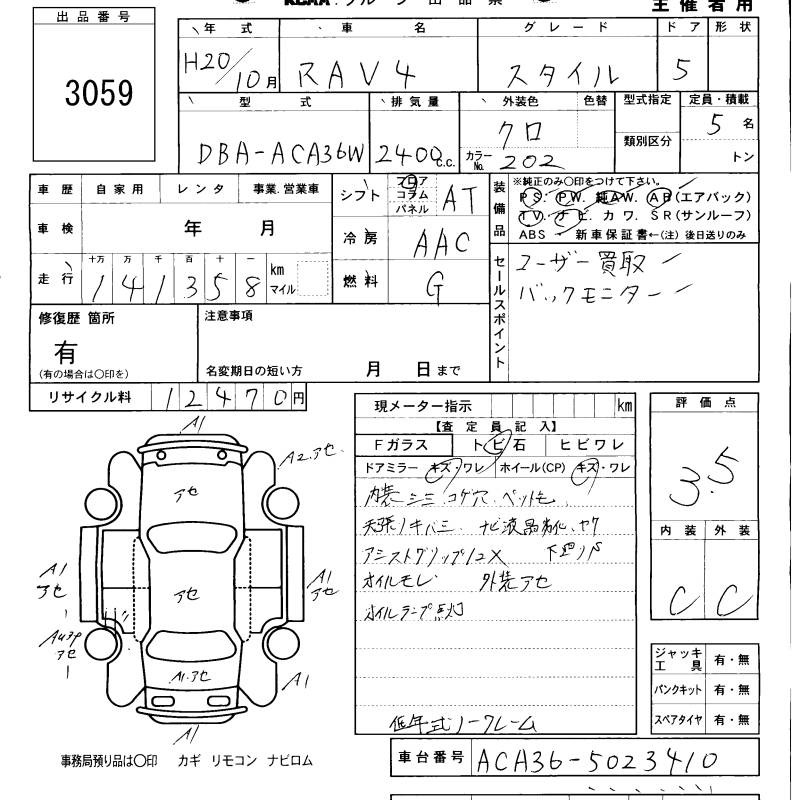 出品番号
3059
主催者用
年式 車名 グレード ドア 形状
H20/10月 RAV4 スタイル 5
型式 排気量 外装色 色替 型式指定 定員・積載
DBA-ACA36W 2400c.c. クロ カラーNo. 202 類別区分 5名
トン
車歴 自家用 レンタ 事業.営業車
シフト フロア コラム パネル AT
装備品
※純正のみ〇印をつけて下さい。
PS. PW. 純AW. AB(エアバック)
TV. ナビ. カワ. SR(サンルーフ)
ABS 新車保証書←(注) 後日送りのみ
車検 年 月
冷房 AAC
走行 十万 万 千 百 十 一
141358 km マイル
燃料 G
セールスポイント
ユーザー買取
バックモニター
修復歴 箇所
有
(有の場合は〇印を)
注意事項
名変期日の短い方 月 日まで
リサイクル料 12470円
現メーター指示 km
【査定員記入】
Fガラス トビ石 ヒビワレ
ドアミラー キズ・ワレ ホイール(CP) キズ・ワレ
内装シミ コゲ穴 ペット毛
天張ノキバミ ナビ液晶劣化、ヤケ
アシストグリップ12X
オイルモレ 外装アセ
オイルランプ点灯
低年式ノークレーム
評価点
3.5
内装 外装
C C
ジャッキ工具 有・無
パンクキット 有・無
スペアタイヤ 有・無
A1
A2.アセ
アセ
アセ
A1
アセ
A1
アセ
アセ
A1.アセ
A1
A1
事務局預り品は〇印 カギ リモコン ナビロム
車台番号 ACA36-5023410